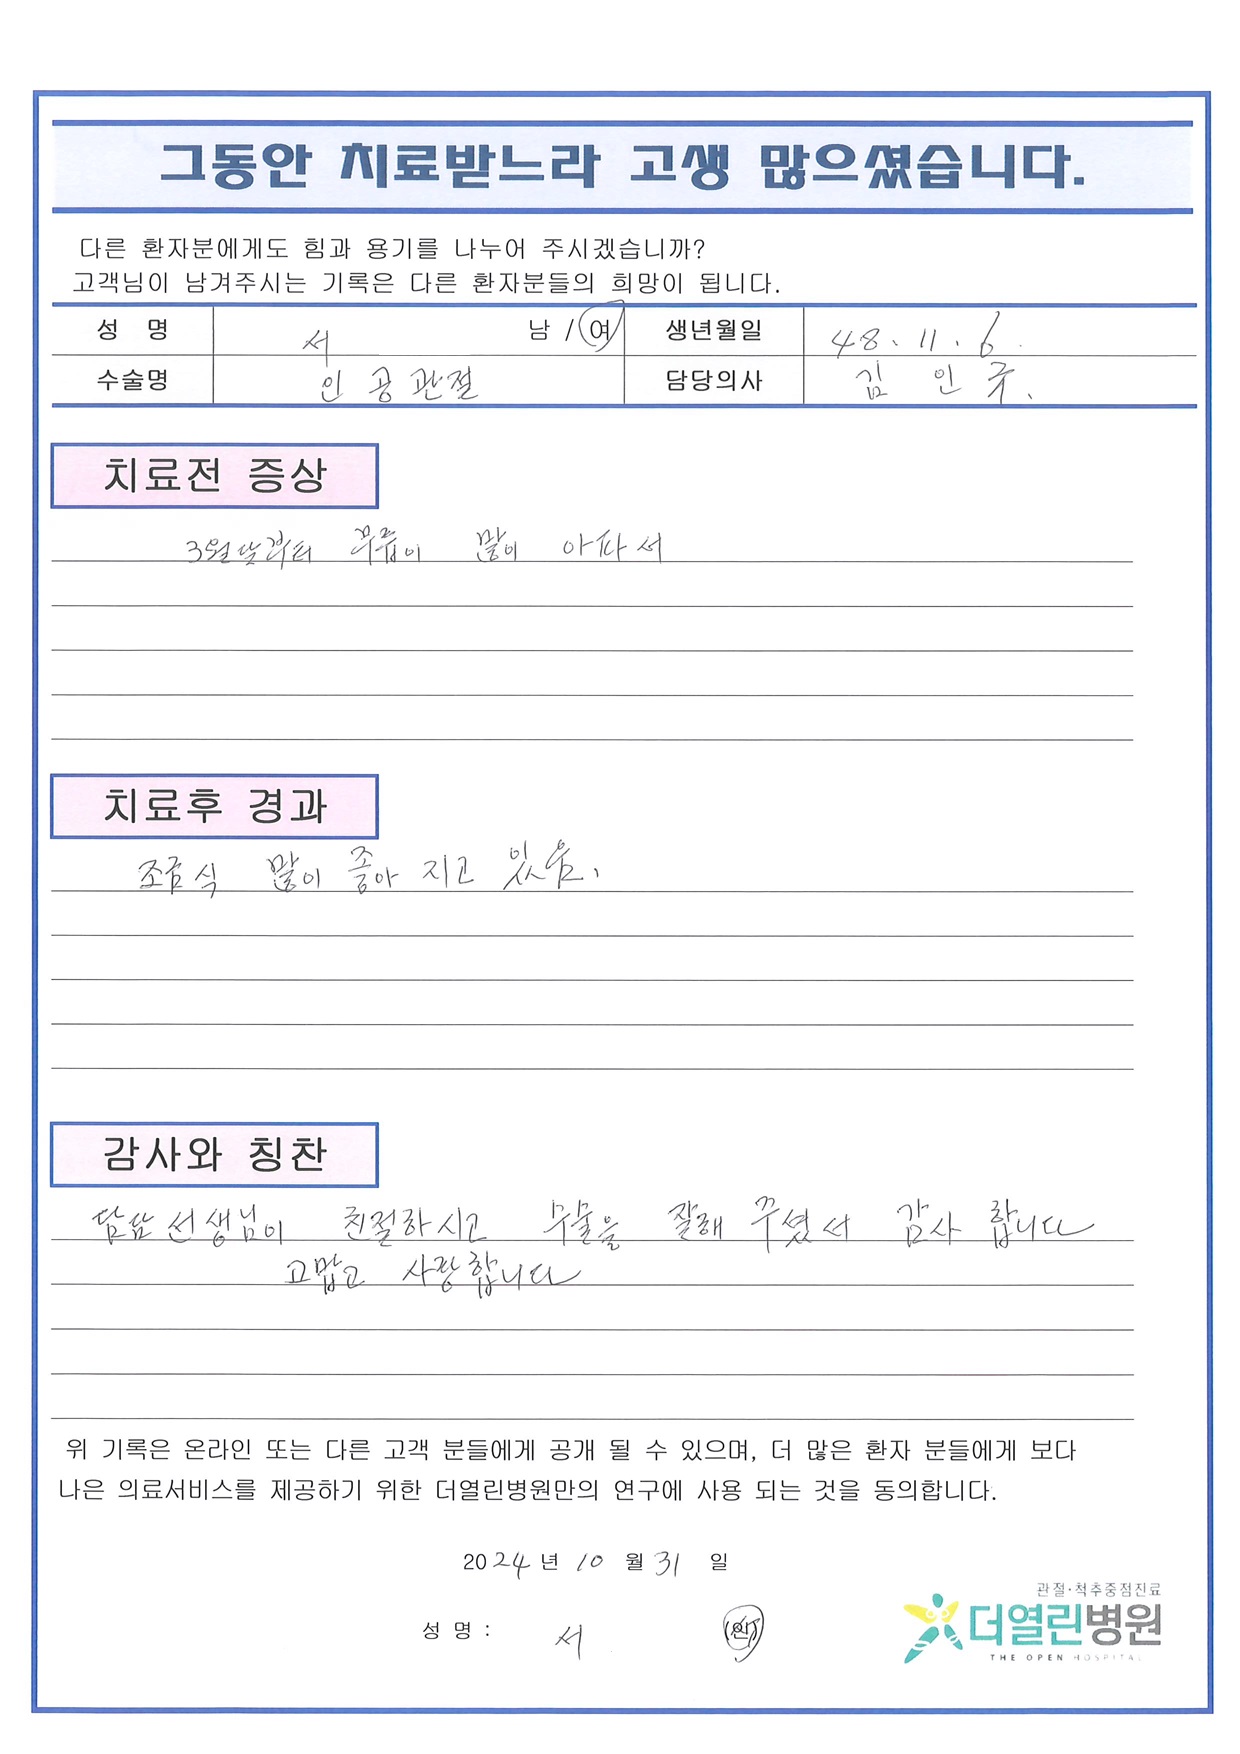 그동안 치료받느라 고생 많으셨습니다.
다른 환자분에게도 힘과 용기를 나누어 주시겠습니까?
고객님이 남겨주시는 기록은 다른 환자분들의 희망이 됩니다.
성 명 서 남 / 여 생년월일 48. 11. 6.
수술명 인공관절 담당의사 김 인
치료전 증상
3월달부터 무릎이 많이 아파서
치료후 경과
조금식 많이 좋아 지고 있음.
감사와 칭찬
담담선생님이 친절하시고 잘해 주셨서 감사 합니다
고맙고 사랑합니다
위 기록은 온라인 또는 다른 고객 분들에게 공개 될 수 있으며, 더 많은 환자 분들에게 보다
나은 의료서비스를 제공하기 위한 더열린병원만의 연구에 사용 되는 것을 동의합니다.
2024년 10 월 31 일
성 명 : 서 (인)
관절·척추중점진료
더열린병원
THE OPEN HOSPITAL